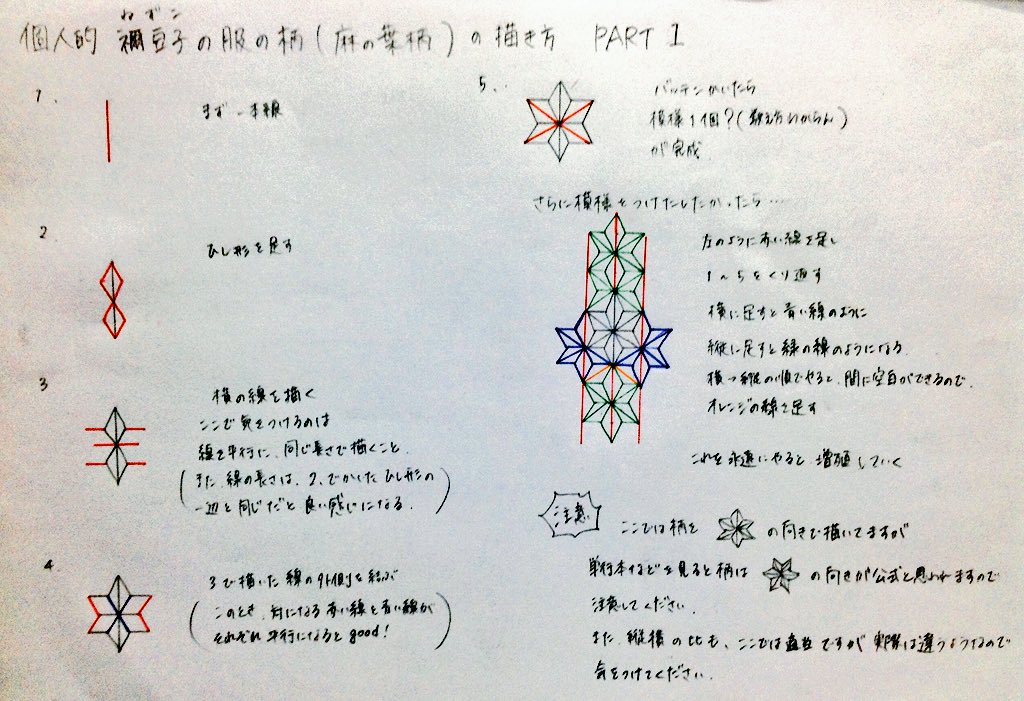 ねずこ
個人的 禰豆子の服の柄(麻の葉柄)の描き方 PART 1
1.
まず一本線
2.
ひし形を足す
3
横の線を描く
ここで気をつけるのは
線を平行に、同じ長さで描くこと
(また、線の長さは、2.でかいたひし形の
一辺と同じだと良い感じになる.)
4
3で描いた線の外側を結ぶ
(このとき、対になる赤い線と青い線が
それぞれ平行になるとgood!)
5.
バッテンかいたら
模様1個?(数え方わからん)
が完成.
さらに模様をつけたしたかったら…
左のように赤い線を足し
1〜5をくり返す
横に足すと青い線のように
縦に足すと緑の線のようになる.
横→縦の順でやると、間に空白ができるので、
オレンジの線を足す
これを永遠にやると増殖していく
注意
ここでは柄を の向きで描いてますが
単行本などを見ると柄は の向きが公式と思われますので
注意してください.
また、縦横の比も、ここでは ですが実際は違うようなので
気をつけてください.